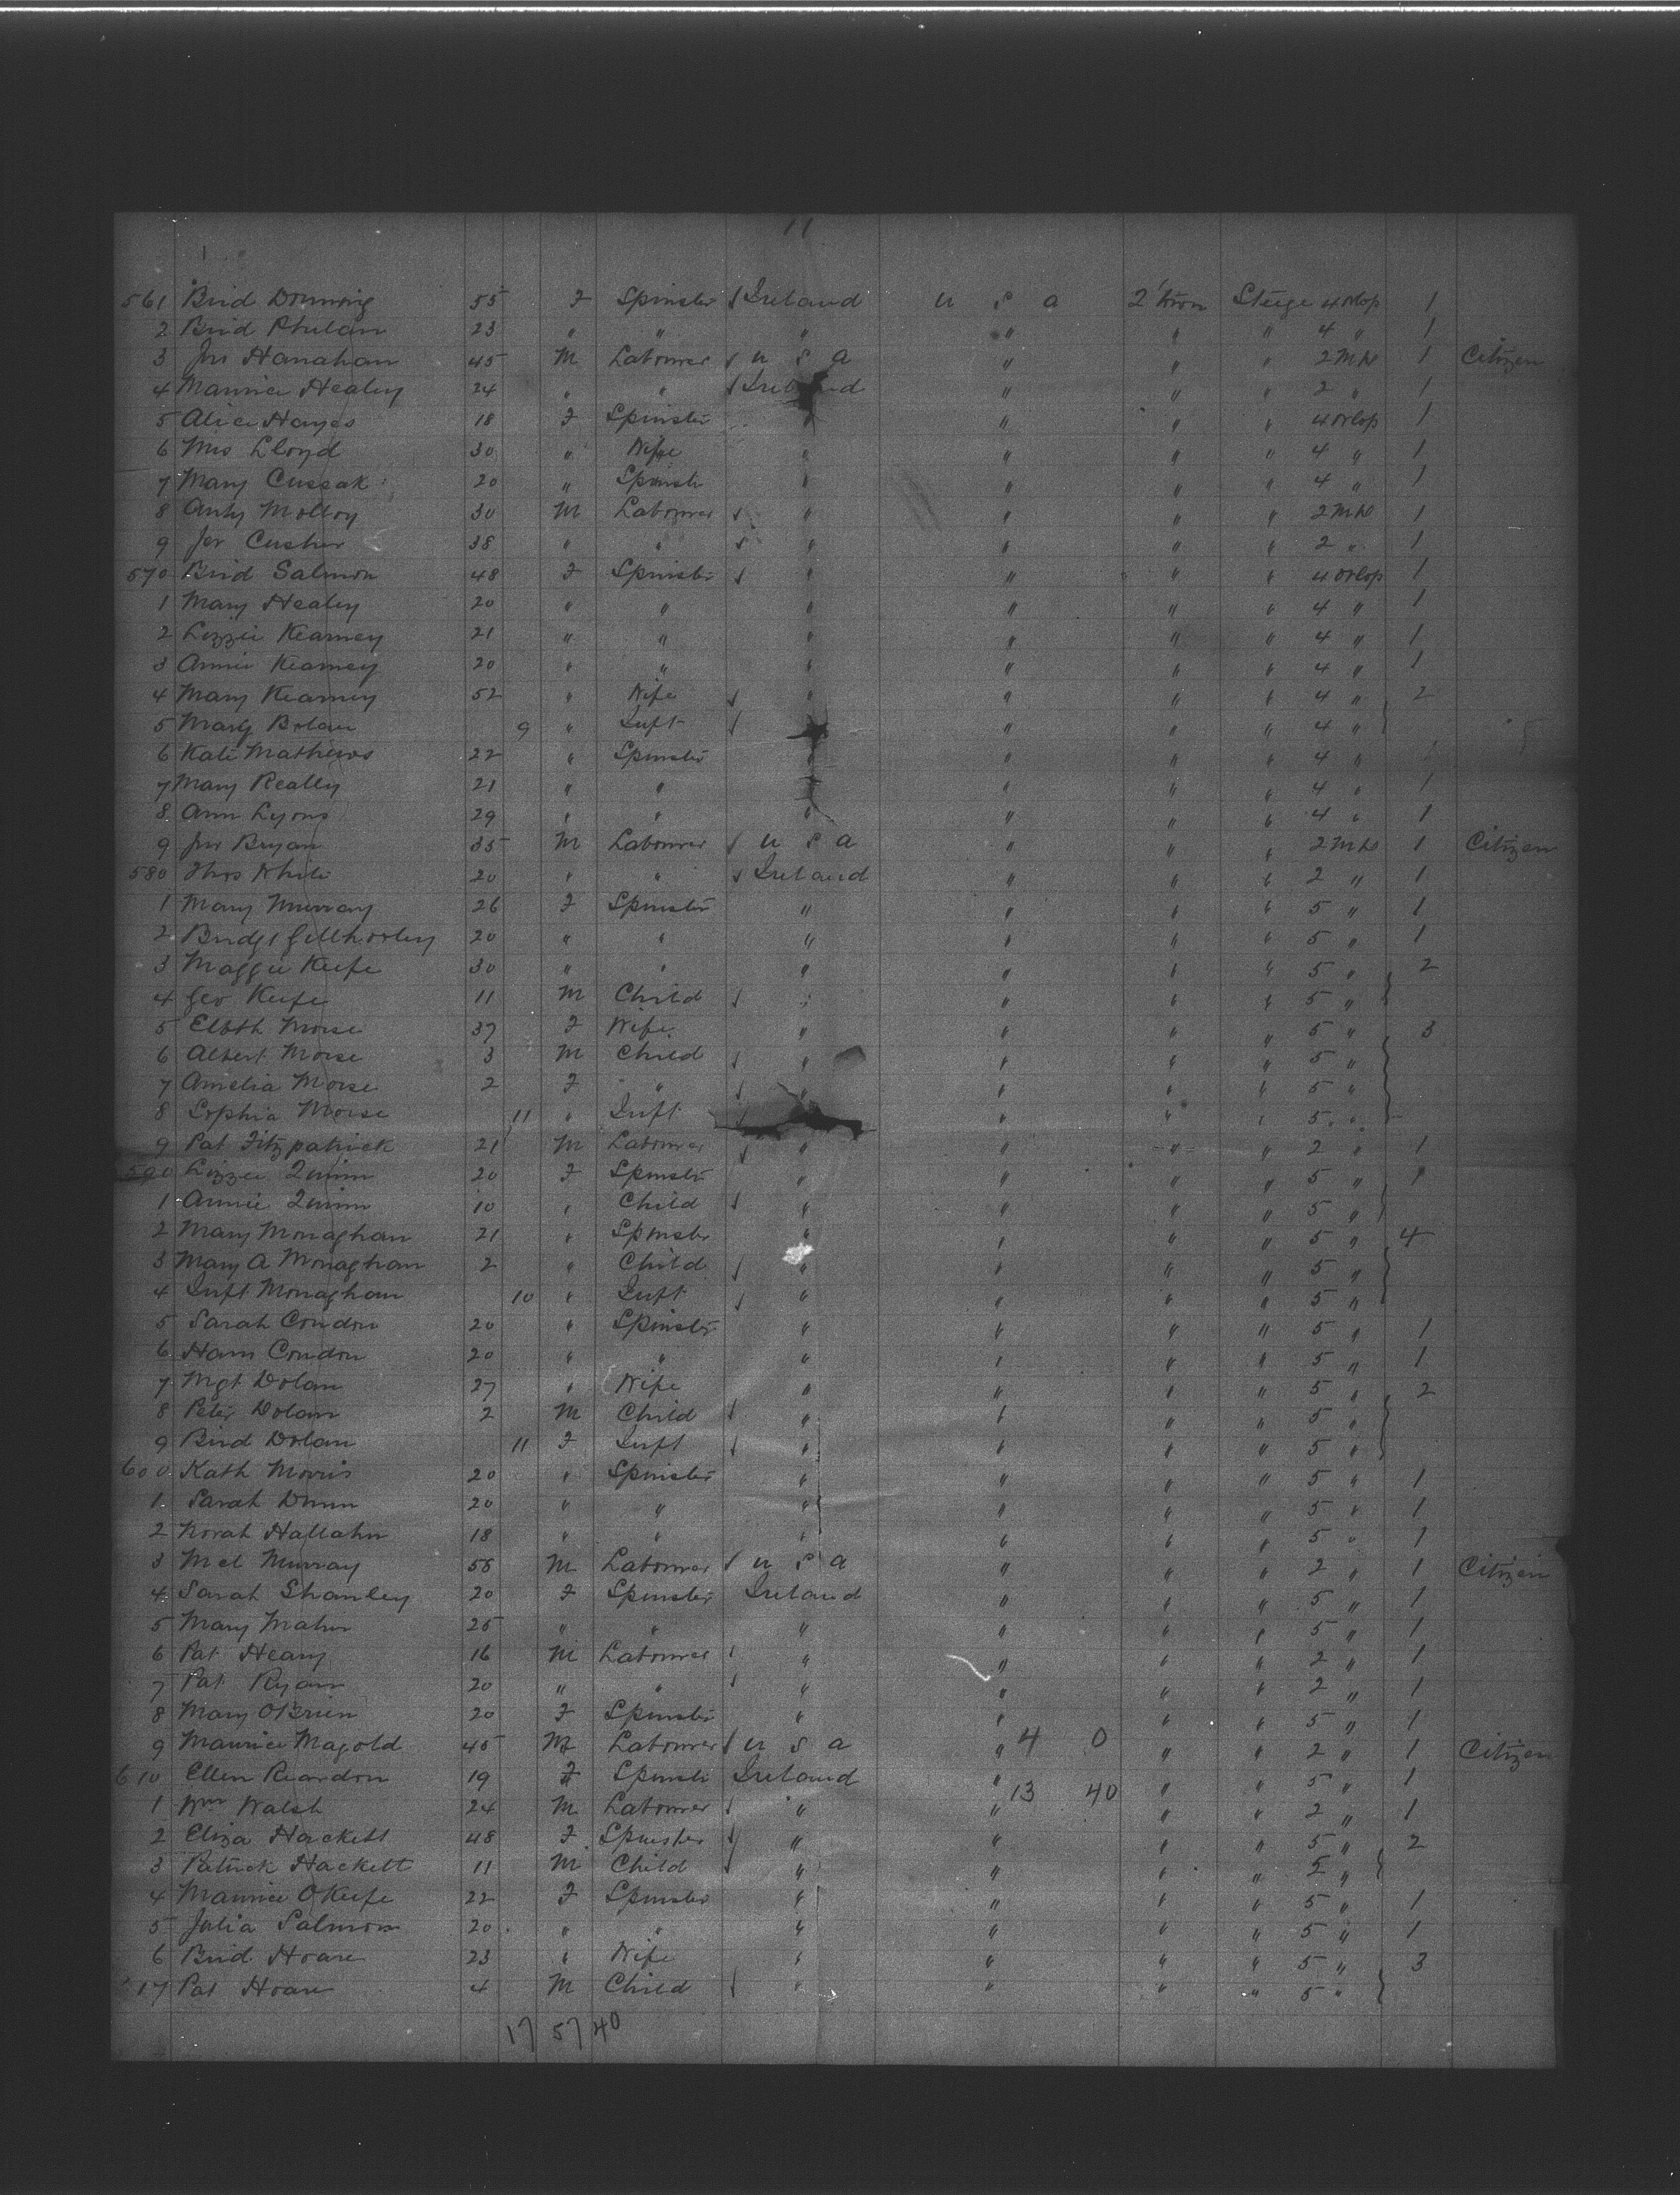 11
561 Brid Downing 55 F Spinster √ Ireland U S A 2 Town Steige 4 Orlop 1
2 Brid Phelan 23 " " " " " " 4 " 1
3 Jno Hanahan 45 M Labourer √ U S A " " " 2 M dk 1 Citizen
4 Maurice Healey 24 " " √ Ireland " " " 2 " 1
5 Alice Hayes 18 F Spinster " " " " 4 Orlop 1
6 Mrs Lloyd 30 " Wife " " " " 4 " 1
7 Mary Cussak 20 " Spinster " " " " 4 " 1
8 Anty Molloy 30 M Labourer √ " " " " 2 M dk 1
9 Jer Cusher 38 " " √ " " " " 2 " 1
570 Brid Salmon 48 F Spinster √ " " " " 4 Orlop 1
1 Mary Healey 20 " " " " " " 4 " 1
2 Lizzie Kearney 21 " " " " " " 4 " 1
3 Annie Kearney 20 " " " " " " 4 " 1
4 Mary Kearney 52 " Wife √ " " " " 4 " 2
5 Mary Bolan 9 " Inft √ " " " " 4 "
6 Kate Mathews 22 " Spinster " " " " 4 "
7 Mary Really 21 " " " " " " 4 " 1
8 Ann Lyons 29 " " " " " " 4 " 1
9 Jno Bryan 35 M Labourer √ U S A " " " 2 M dk 1 Citizen
580 Thos White 20 " " √ Ireland " " " 2 " 1
1 Mary Murray 26 F Spinster " " " " 5 " 1
2 Bridgt Gillhooley 20 " " " " " " 5 " 1
3 Maggie Keefe 30 " " " " " " 5 " 2
4 Geo Keefe 11 M Child √ " " " " 5 "
5 Elbth Morse 37 F Wife " " " " 5 " 3
6 Albert Morse 3 M Child √ " " " " 5 "
7 Amelia Morse 2 F " √ " " " " 5 "
8 Sophia Morse 11 " Inft √ " " " 5 "
9 Pat Fitzpatrick 21 M Labourer √ " " " " 2 " 1
590 Lizzie Quinn 20 F Spinster " " " " 5 " 1
1 Annie Quinn 10 " Child √ " " " " 5 "
2 Mary Monaghan 21 " Spinster " " " " 5 " 4
3 Mary A Monaghan 2 " Child √ " " " " 5 "
4 Inft Monaghan 10 " Inft √ " " " " 5 "
5 Sarah Condon 20 " Spinster " " " " 5 " 1
6 Han Condon 20 " " " " " " 5 " 1
7 Mgt Dolan 27 " Wife " " " " 5 " 2
8 Peter Dolan 2 M Child √ " " " " 5 "
9 Brid Dolan 11 F Inft √ " " " " 5 "
600 Kath Morris 20 " Spinster " " " " 5 " 1
1 Sarah Dunn 20 " " " " " " 5 " 1
2 Norah Hallahn 18 " " " " " " 5 " 1
3 Mcl Murray 56 M Labourer √ U S A " " " 2 " 1 Citizen
4 Sarah Shanley 20 F Spinster Ireland " " " 5 " 1
5 Mary Maher 25 " " " " " " 5 " 1
6 Pat Heany 16 M Labourer √ " " " " 2 " 1
7 Pat Ryan 20 " " √ " " " " 2 " 1
8 Mary O'Brien 20 F Spinster " " " " 5 " 1
9 Maurice Magold 45 M Labourer √ U S A " 4 0 " " 2 " 1 Citizen
610 Ellen Reardon 19 F Spinster Ireland " 13 40 " " 5 " 1
1 Wm Walsh 24 M Labourer √ " " " " 2 " 1
2 Eliza Hackett 48 F Spinster √ " " " " 5 " 2
3 Patrick Hackett 11 M Child √ " " " " 2 "
4 Maurice O'Keefe 22 F Spinster " " " " 5 " 1
5 Julia Salmon 20 " " " " " " 5 " 1
6 Brid Hoare 23 " Wife " " " " 5 " 3
17 Pat Hoare 4 M Child √ " " " " 5 "
17 57 40